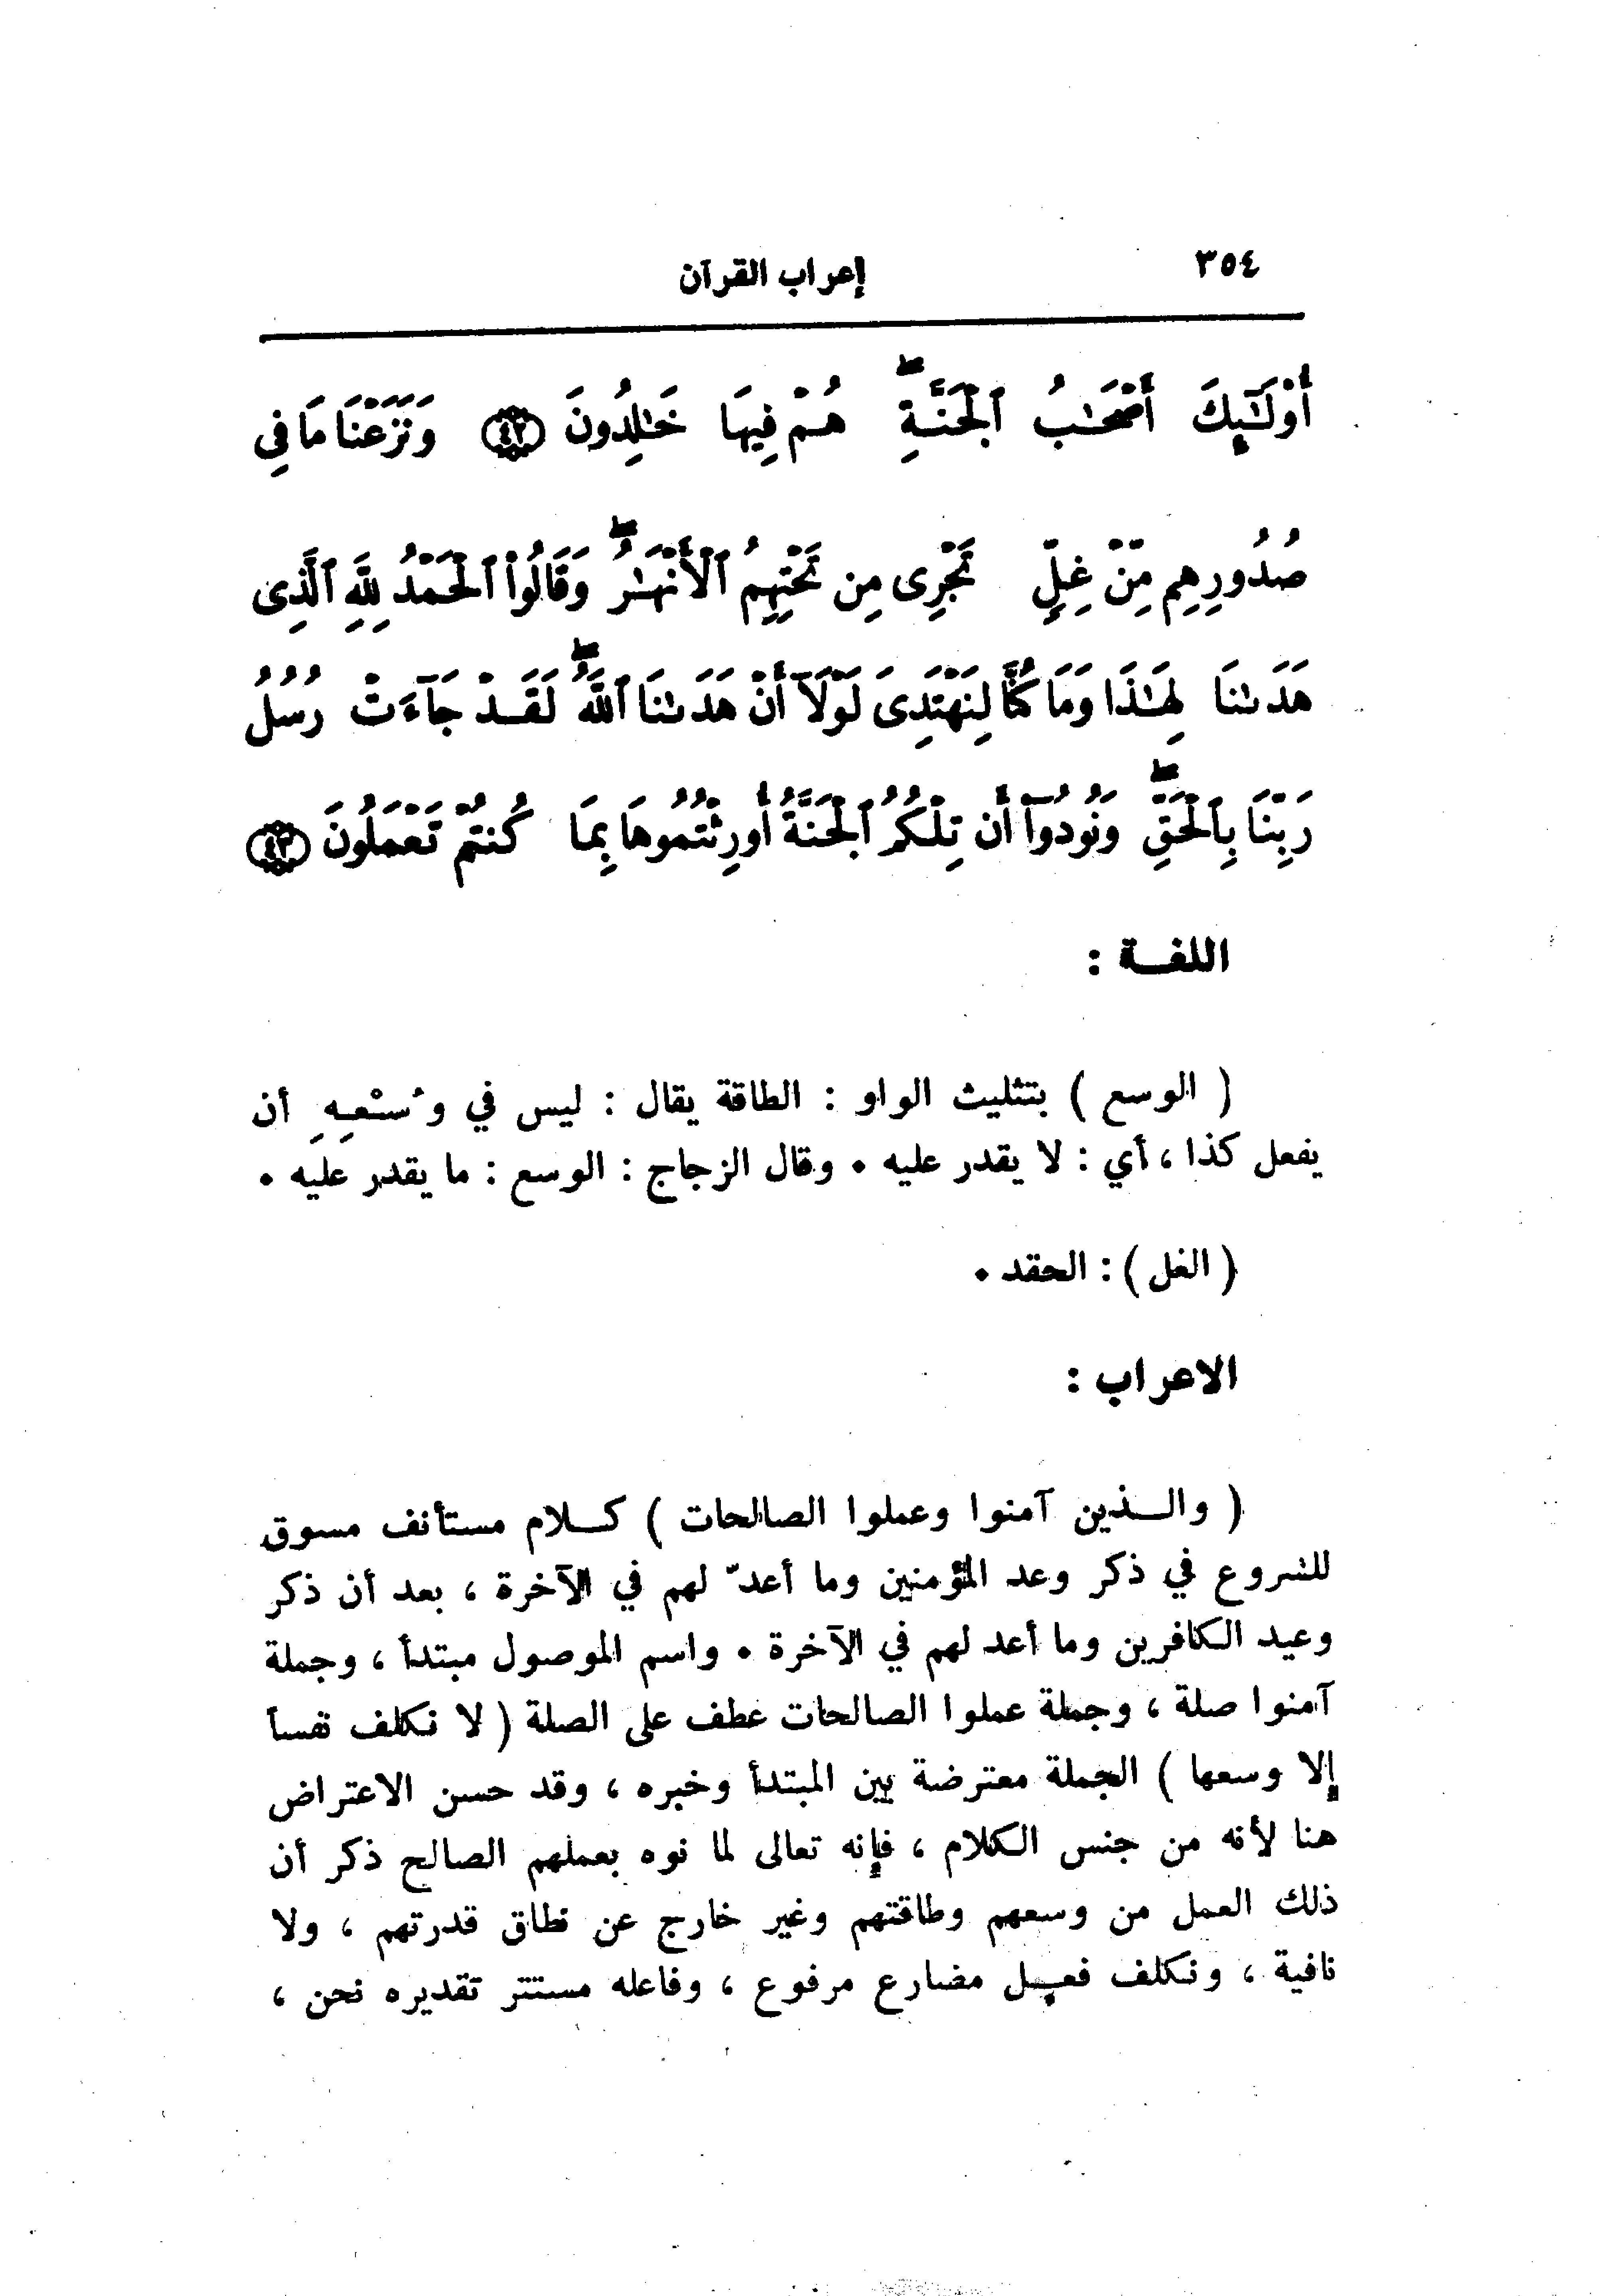 ٣٥٤
إعراب القرآن
أُوْلَٰٓئِكَ أَصْحَٰبُ ٱلْجَنَّةِۖ هُمْ فِيهَا خَٰلِدُونَ ﴿٤٢﴾ وَنَزَعْنَا مَا فِى
صُدُورِهِم مِّنْ غِلٍّ تَجْرِى مِن تَحْتِهِمُ ٱلْأَنْهَٰرُۖ وَقَالُوا۟ ٱلْحَمْدُ لِلَّهِ ٱلَّذِى
هَدَىٰنَا لِهَٰذَا وَمَا كُنَّا لِنَهْتَدِىَ لَوْلَآ أَنْ هَدَىٰنَا ٱللَّهُۖ لَقَدْ جَآءَتْ رُسُلُ
رَبِّنَا بِٱلْحَقِّۖ وَنُودُوٓا۟ أَن تِلْكُمُ ٱلْجَنَّةُ أُورِثْتُمُوهَا بِمَا كُنتُمْ تَعْمَلُونَ ﴿٤٣﴾
اللغـة :
( الوسع ) بتثليث الواو : الطاقة يقال : ليس في وُسْعِهِ أن
يفعل كذا ، أي : لا يقدر عليه . وقال الزجاج : الوسع : ما يقدر عليه .
( الغل ) : الحقد .
الاعراب :
( والـذين آمنوا وعملوا الصالحات ) كـلام مستأنف مسوق
للشروع في ذكر وعد المؤمنين وما أعدّ لهم في الآخرة ، بعد أن ذكر
وعيد الكافرين وما أعد لهم في الآخرة . واسم الموصول مبتدأ ، وجملة
آمنوا صلة ، وجملة عملوا الصالحات عطف على الصلة ( لا نكلف نفساً
إلا وسعها ) الجملة معترضة بين المبتدأ وخبره ، وقد حسن الاعتراض
هنا لأنه من جنس الكلام ، فإنه تعالى لما نوه بعملهم الصالح ذكر أن
ذلك العمل من وسعهم وطاقتهم وغير خارج عن نطاق قدرتهم ، ولا
نافية ، ونكلف فعـل مضارع مرفوع ، وفاعله مستتر تقديره نحن ،